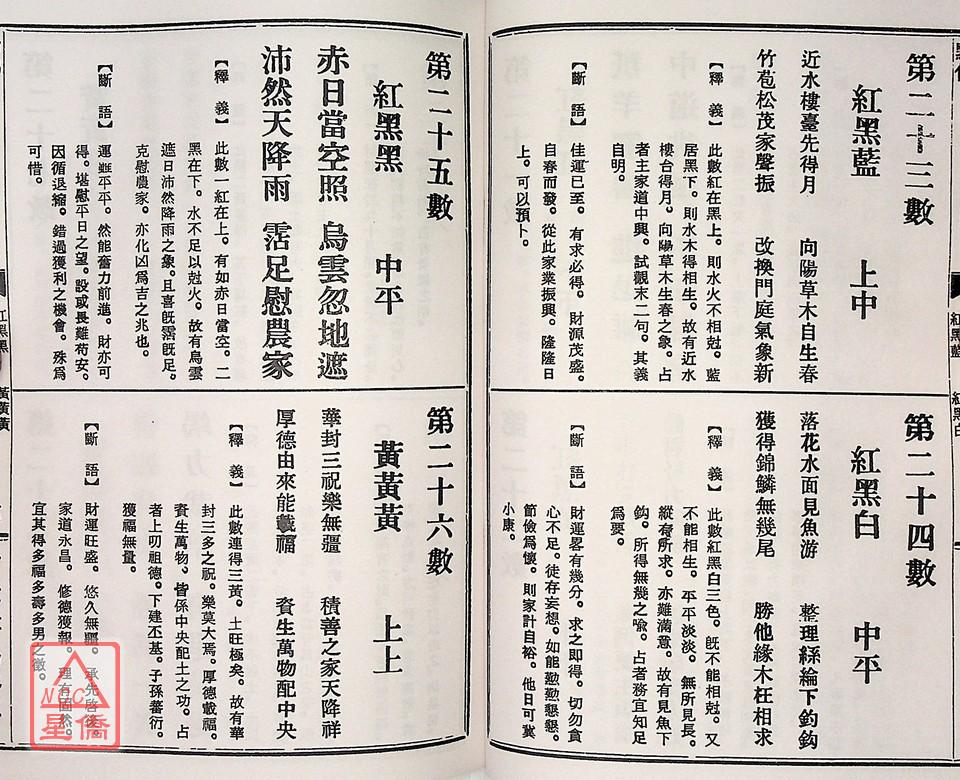 第二十三數
紅黑藍　上中
近水樓臺先得月　向陽草木自生春
竹苞松茂家聲振　改換門庭氣象新
【釋義】此數紅在黑上。則水火不相尅。藍
居黑下。則水木得相生。故有近水
樓台得月。向陽草木生春之象。占
者主家道中興。試觀末二句。其義
自明。
【斷語】佳運已至。有求必得。財源茂盛。
自春而發。從此家業振興。隆隆日
上。可以預卜。
第二十四數
紅黑白　中平
落花水面見魚游　整理絲綸下釣鈎
獲得錦鱗無幾尾　勝他緣木枉相求
【釋義】此數紅黑白三色。旣不能相尅。又
不能相生。平平淡淡。無所見長。
縱有所求。亦難滿意。故有見魚下
鈎。所得無幾之喩。占者務宜知足
爲要。
【斷語】財運畧有幾分。求之即得。切勿貪
心不足。徒存妄想。如能懃懃懇懇。
節儉爲懷。則家計自裕。他日可冀
小康。
紅黑藍
紅黑白
第二十五數
紅黑黑　中平
赤日當空照　烏雲忽地遮
沛然天降雨　霑足慰農家
【釋義】此數一紅在上。有如赤日當空。二
黑在下。水不足以尅火。故有烏雲
遮日沛然降雨之象。且喜旣霑旣足。
克慰農家。亦化凶爲吉之兆也。
【斷語】運雖平平。然能奮力前進。財亦可
得。堪慰平日之望。設或畏難苟安。
因循退縮。錯過獲利之機會。殊爲
可惜。
第二十六數
黃黃黃　上上
華封三祝樂無疆　積善之家天降祥
厚德由來能載福　資生萬物配中央
【釋義】此數連得三黃。土旺極矣。故有華
封三多之祝。樂莫大焉。厚德載福。
資生萬物。皆係中央配土之功。占
者上叨祖德。下建丕基。子孫蕃衍。
獲福無量。
【斷語】財運旺盛。悠久無疆。承先啓後。
家道永昌。修德獲報。理有固然。
宜其得多福多壽多男之徵。
紅黑黑
黃黃黃
NCC
星僑